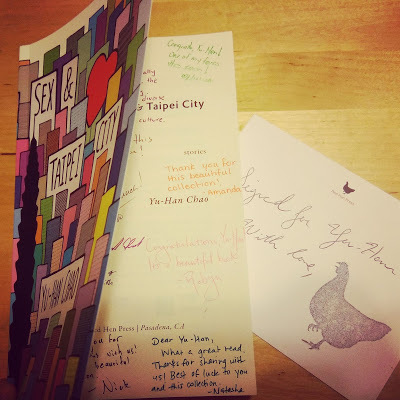 SEX &
TAIPEI
CITY
YU-HAN CHAO
Congrats, Yu-Han!
ally
the
diverse
culture.
& Taipei City
this
stories
Thank you for
this beautiful
collection!
- Amanda
Yu-Han Chao
Congratulations, Yu-Han
for a beautiful book
Hen Press | Pasadena, CA
you for
with us!
beautiful
- Nick
Dear Yu-Han,
What a great read.
Thanks for sharing with
us! Best of luck to you
and this collection.
- Natasha
Signed for Yu-Han
With love,